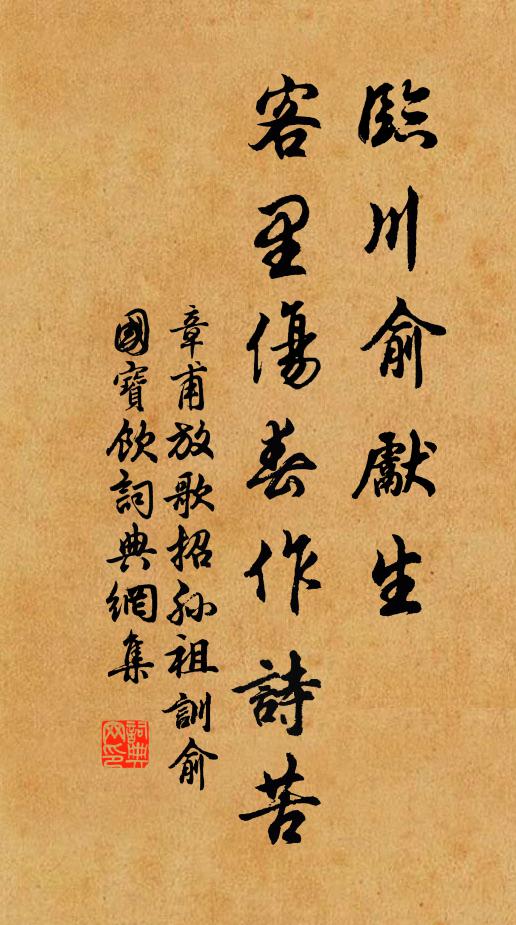 臨川俞獻生
客里傷春作詩苦
章甫放歌招孫祖訓俞
國寶飲詞典網集
詞典網印